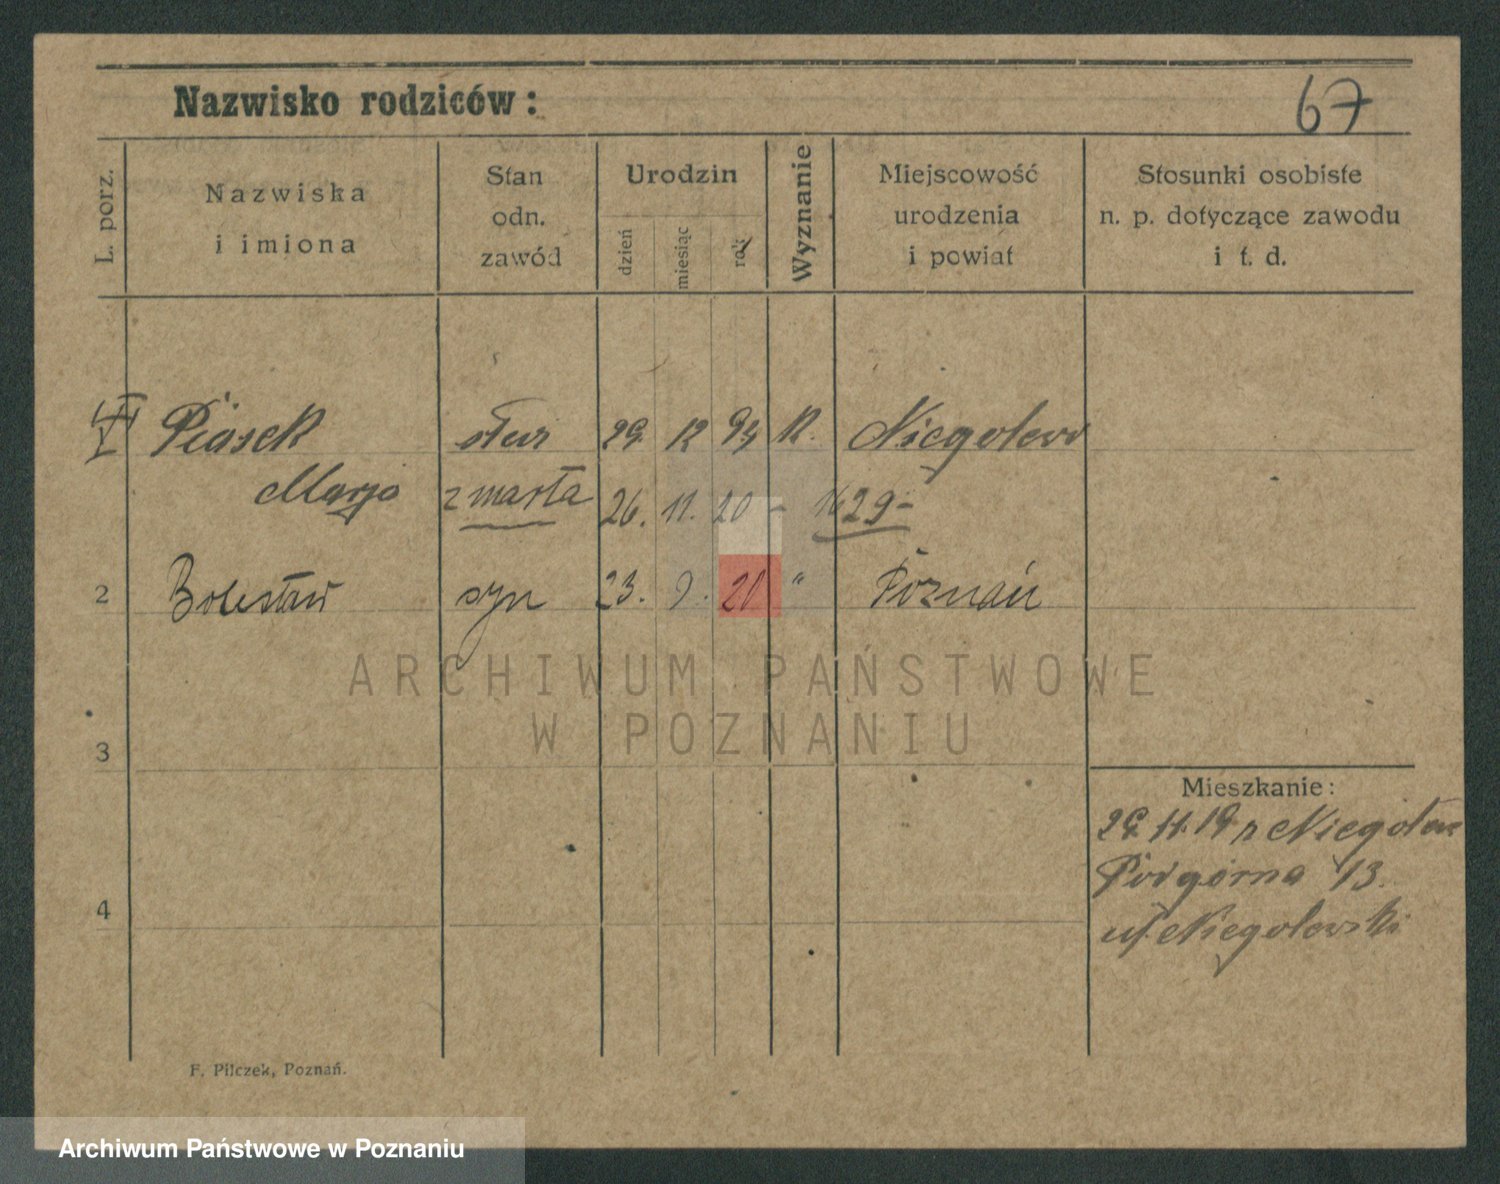 Nazwisko rodziców:
67
L. porz.
Nazwiska
i imiona
Stan
odn.
zawód
Urodzin
dzień
miesiąc
rok
Wyznanie
Miejscowość
urodzenia
i powiat
Stosunki osobiste
n. p. dotyczące zawodu
i t. d.
Piasek służ 29. 12 94 K. Niegolewo
Marja zmarła 26. 11. 20 - 1629-
2 Bolesław syn 23. 9. 20 " Poznań
ARCHIWUM PAŃSTWOWE
W POZNANIU
3
Mieszkanie:
29 11. 19 z Niegolewa
Podgórna 13.
4
u/ Niegolewski
F. Pilczek, Poznań.
Archiwum Państwowe w Poznaniu